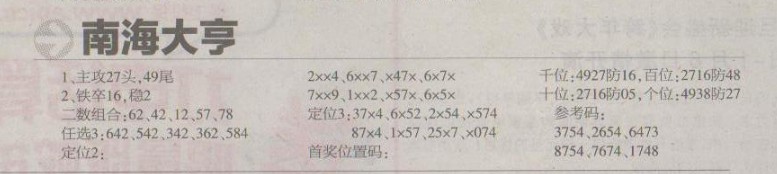 南海大亨
1、主攻27头,49尾
2、铁卒16,稳2
二数组合:62、42、12、57、78
任选3:642、542、342、362、584
定位2:
2××4、6××7、×47×、6×7×
7××9、1××2、×57×、6×5×
定位3:37×4、6×52、2×54、×574
87×4、1×57、25×7、×074
首奖位置码:
千位:4927防16,百位:2716防48
十位:2716防05,个位:4938防27
参考码:
3754、2654、6473
8754、7674、1748